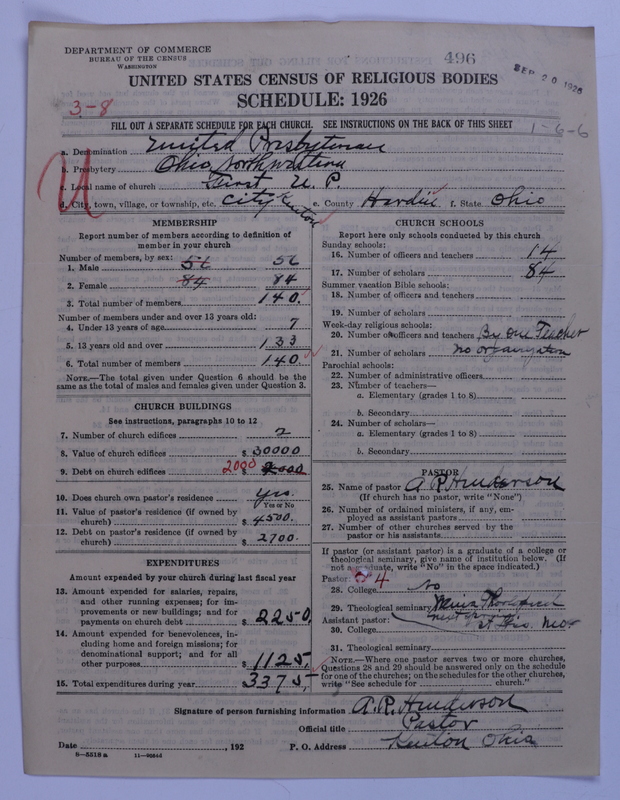 DEPARTMENT OF COMMERCE
BUREAU OF THE CENSUS
WASHINGTON
496
SEP 20 1926
UNITED STATES CENSUS OF RELIGIOUS BODIES
SCHEDULE: 1926
3-8
FILL OUT A SEPARATE SCHEDULE FOR EACH CHURCH. SEE INSTRUCTIONS ON THE BACK OF THIS SHEET
1-6-6
U
a. Denomination United Presbyterian
b. Presbytery Ohio Northwestern
c. Local name of church First U. P.
d. City, town, village, or township, etc. City Kenton e. County Hardin f. State Ohio
MEMBERSHIP
Report number of members according to definition of member in your church
Number of members, by sex:
1. Male 56 56
2. Female 84 84
3. Total number of members 140.
Number of members under and over 13 years old:
4. Under 13 years of age 7
5. 13 years old and over 133
6. Total number of members 140
NOTE.—The total given under Question 6 should be the same as the total of males and females given under Question 3.
CHURCH BUILDINGS
See instructions, paragraphs 10 to 12
7. Number of church edifices 2
8. Value of church edifices $ 30000
9. Debt on church edifices 2000 $
10. Does church own pastor's residence yes.
Yes or No
11. Value of pastor's residence (if owned by church) $ 4500.
12. Debt on pastor's residence (if owned by church) $ 2700.
EXPENDITURES
Amount expended by your church during last fiscal year
13. Amount expended for salaries, repairs, and other running expenses; for improvements or new buildings; and for payments on church debt $ 2250.
14. Amount expended for benevolences, including home and foreign missions; for denominational support; and for all other purposes $ 1125.
15. Total expenditures during year $ 3375.
CHURCH SCHOOLS
Report here only schools conducted by this church
Sunday schools:
16. Number of officers and teachers 14
17. Number of scholars 84
Summer vacation Bible schools:
18. Number of officers and teachers
19. Number of scholars
Week-day religious schools:
20. Number of officers and teachers By one Teacher
21. Number of scholars no organization
Parochial schools:
22. Number of administrative officers
23. Number of teachers—
a. Elementary (grades 1 to 8)
b. Secondary
24. Number of scholars—
a. Elementary (grades 1 to 8)
b. Secondary
PASTOR
25. Name of pastor A R Henderson
(If church has no pastor, write "None")
26. Number of ordained ministers, if any, employed as assistant pastors
27. Number of other churches served by the pastor or his assistants
If pastor (or assistant pastor) is a graduate of a college or theological seminary, give name of institution below. (If not a graduate, write "No" in the space indicated.)
Pastor: 4
28. College No
29. Theological seminary
Assistant pastor:
30. College
31. Theological seminary
NOTE.—Where one pastor serves two or more churches, Questions 28 and 29 should be answered only on the schedule for one of the churches; on the schedules for the other churches, write "See schedule for church."
Signature of person furnishing information A. R. Henderson
Official title Pastor
Date , 192 P. O. Address Kenton Ohio
8—5518 a